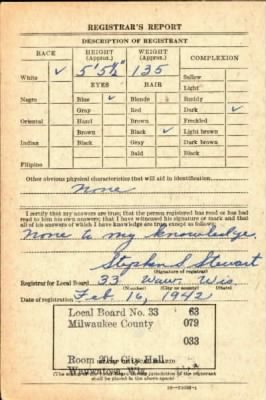 REGISTRAR'S REPORT
DESCRIPTION OF REGISTRANT
RACE HEIGHT (Approx.) WEIGHT (Approx.) COMPLEXION
White ✓ 5'5½" 135 Sallow
EYES HAIR Light
Negro Blue ✓ Blonde Ruddy
Gray Red Dark ✓
Oriental Hazel Brown Freckled
Brown Black ✓ Light brown
Indian Black Gray Dark brown
Bald Black
Filipino
Other obvious physical characteristics that will aid in identification
None
I certify that my answers are true; that the person registered has read or has had
read to him his own answers; that I have witnessed his signature or mark and that
all of his answers of which I have knowledge are true, except as follows:
None to my knowledge.
Stephen S Stewart
(Signature of registrar)
Registrar for Local Board 33 Wauw. Wis.
(Number) (City or county) (State)
Date of registration Feb. 16, 1942
Local Board No. 33 63
Milwaukee County 079
033
Room 204, City Hall
Wauwatosa, Wis.
shall be placed in the above space)